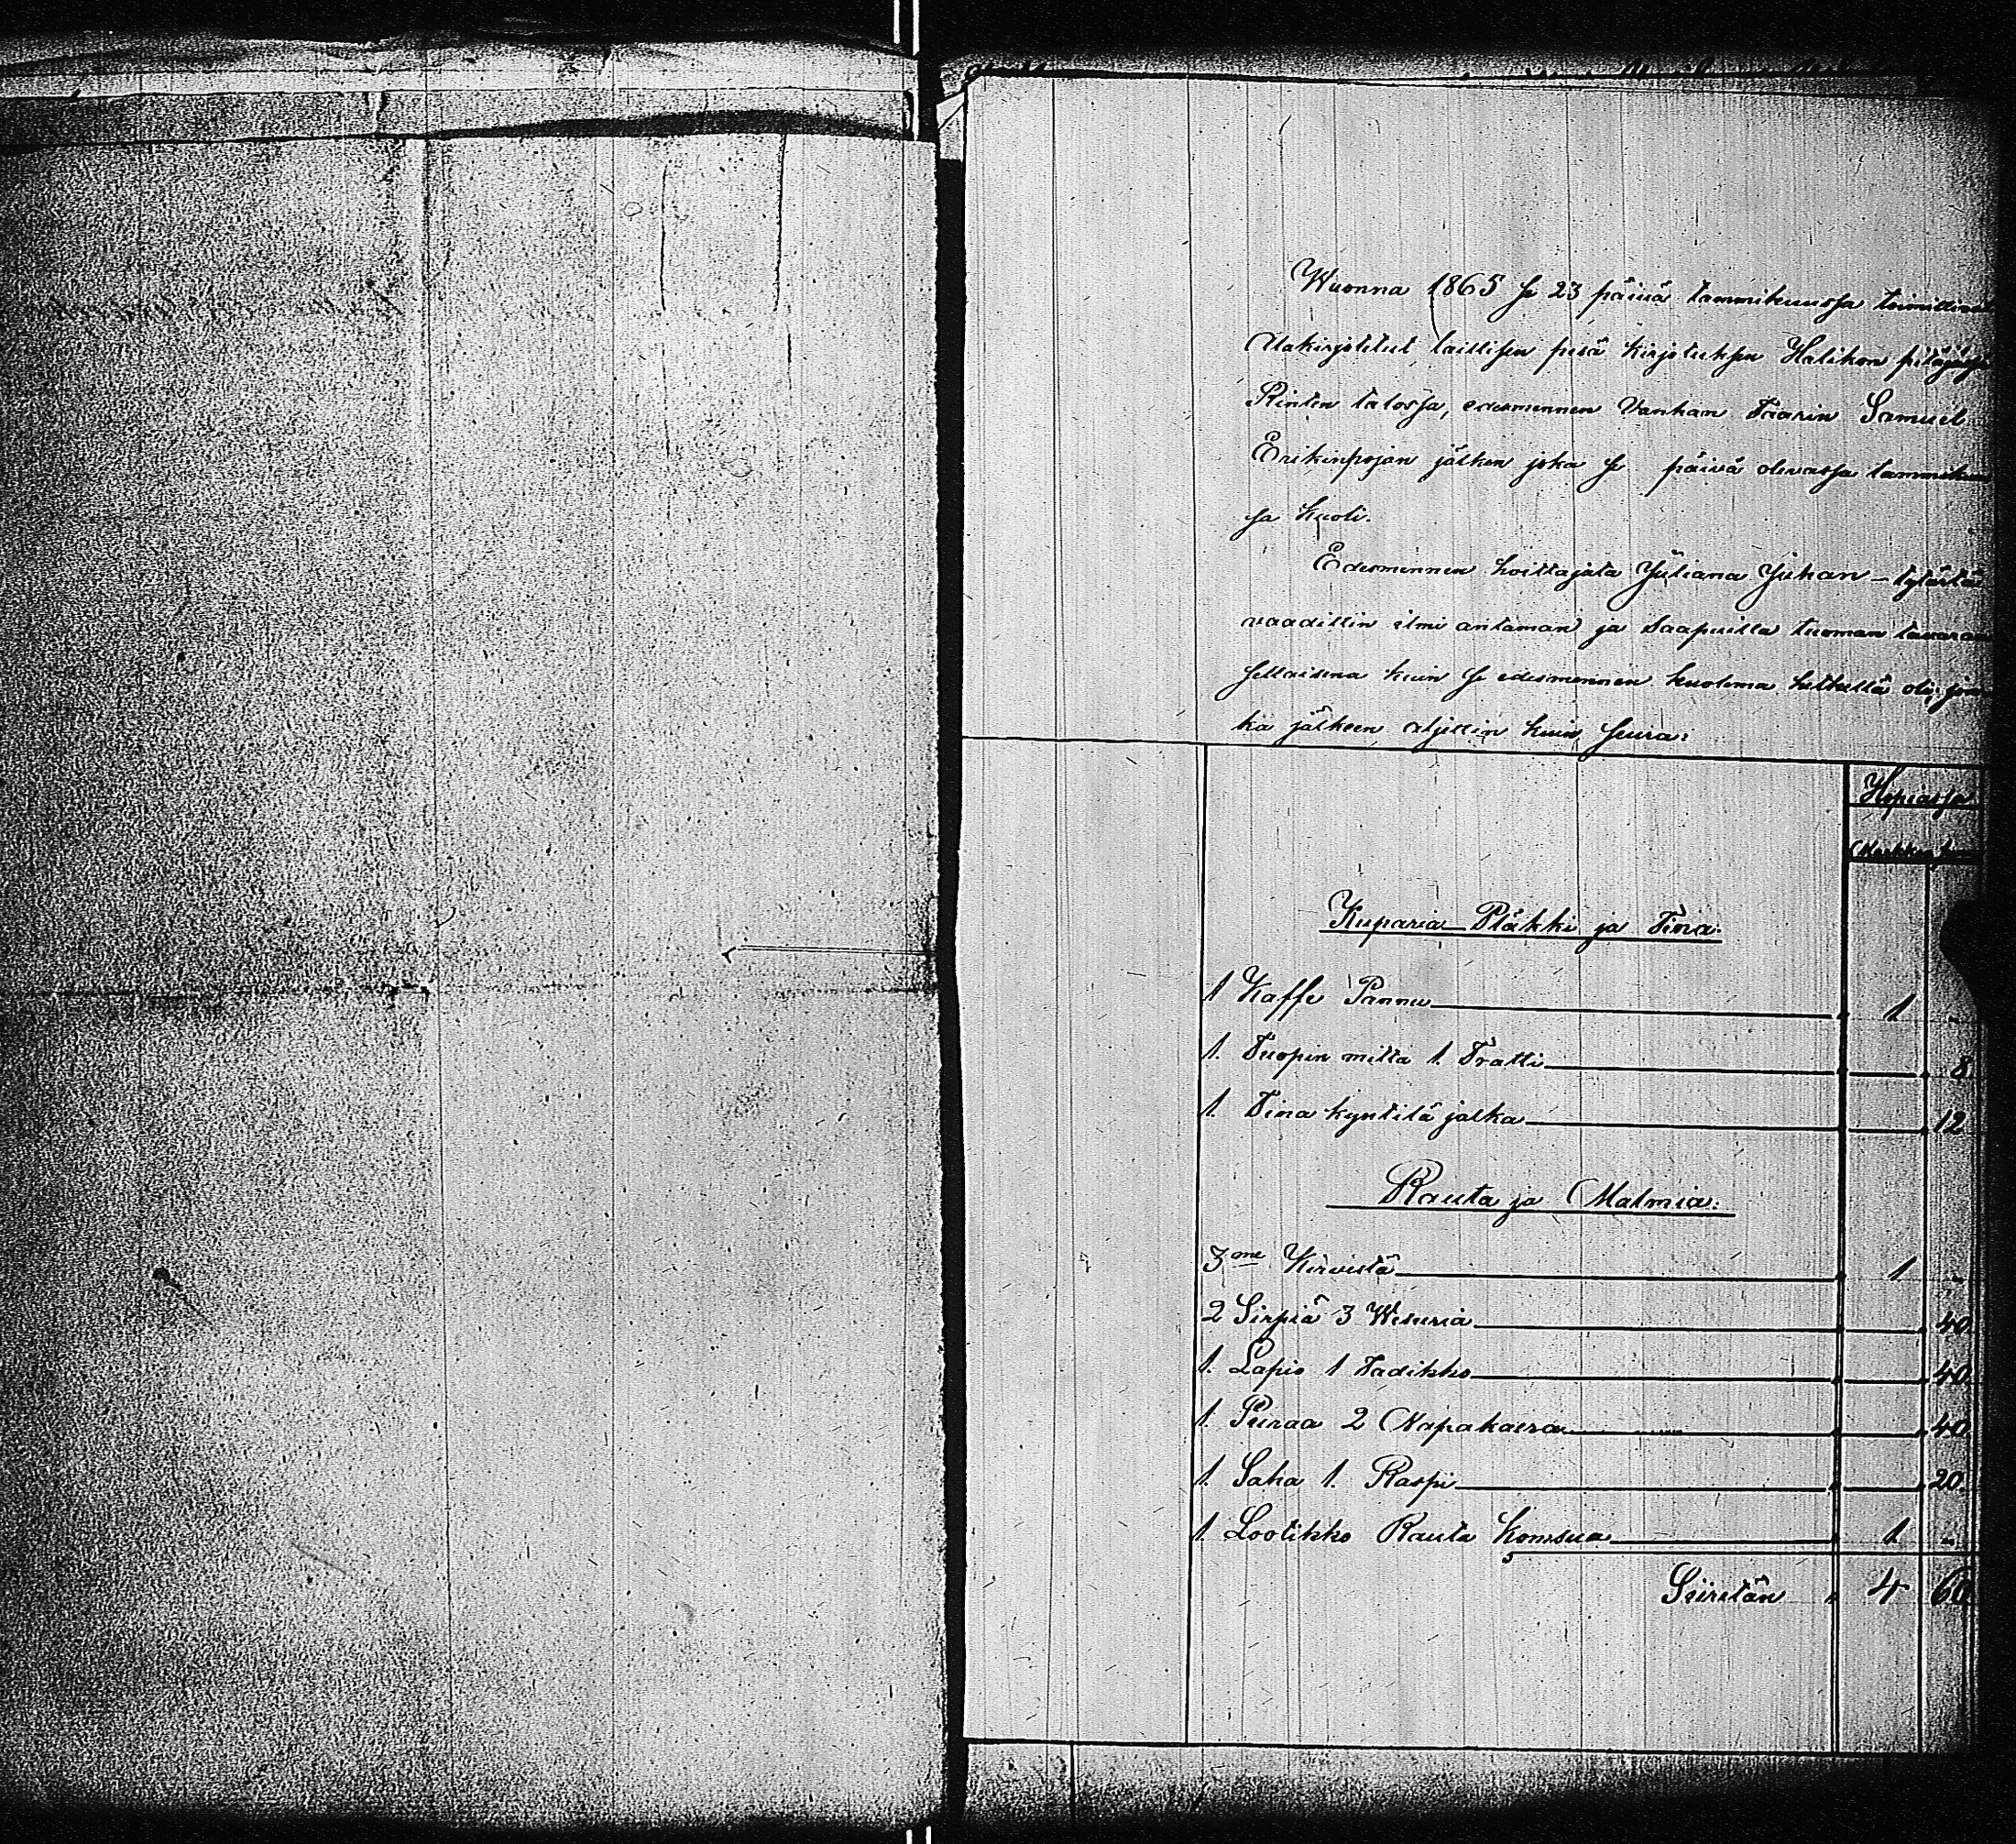 Wuonna 1865 se 23 päivä tammikuussa toimittivat
Allakirjotetut laillisen pesä kirjotuksen Halikon pitäjässä
Rinten talossa, edesmennen Vanhan Faarin Samuel
Erikinpojan jälken joka se päivä olevassa tammikuu
sa kuoli.
Edesmennen hoittajata Juliana Juhan-tytärtä
vaadittin ilmi antaman ja saapuilla tuoman tavaran
sellaisena kuin se edesmennen kuolema hetkellä oli, jon
ka jälkeen aljettin kuin seura:
Hopiassa
Markka
Kuparia Pläkki ja Tina:
1 Kaffe Pannu 1 "
1. Tuopin mitta 1. Tratti 8.
1. Tina kyntilä jalka 12
Rauta ja Malmia:
3me Kirvistä 1 "
2 Sirpiä 3 Wesuria 40.
1. Lapio 1 Tadikko 40.
1. Puraa 2 Napakaera 40.
1. Saha 1. Raspi 20.
1. Lootikko Rauta komsua 1 "
Siiretän 4 60